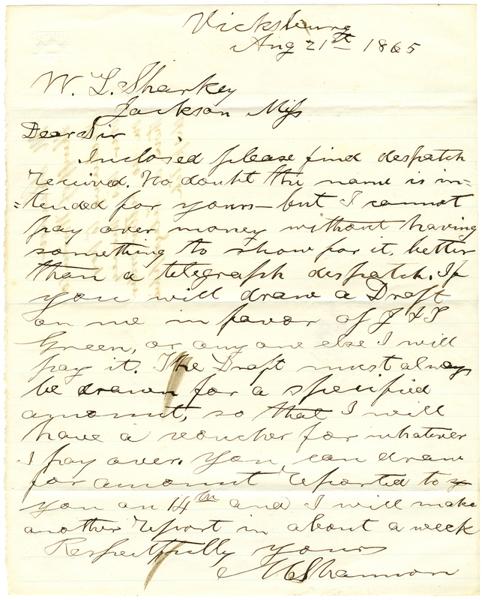 Vicksburg
Aug 21th 1865
W. L. Sharkey
Jackson Miss
Dear Sir
Inclosed please find despatch
recived. No doubt the name is in=
=tended for yours - but I cannot
pay over money without having
something to show for it, better
than a telegraph despatch. If
you will draw a Draft
on me in favor of J & T
Green, or any one else I will
pay it. The Draft must alway
be drawn for a specified
amount, so that I will
have a voucher for whatever
I pay over. You can draw
for amount reported to
you on 14th and I will make
another report in about a week
Respectfully yours
M Shannon